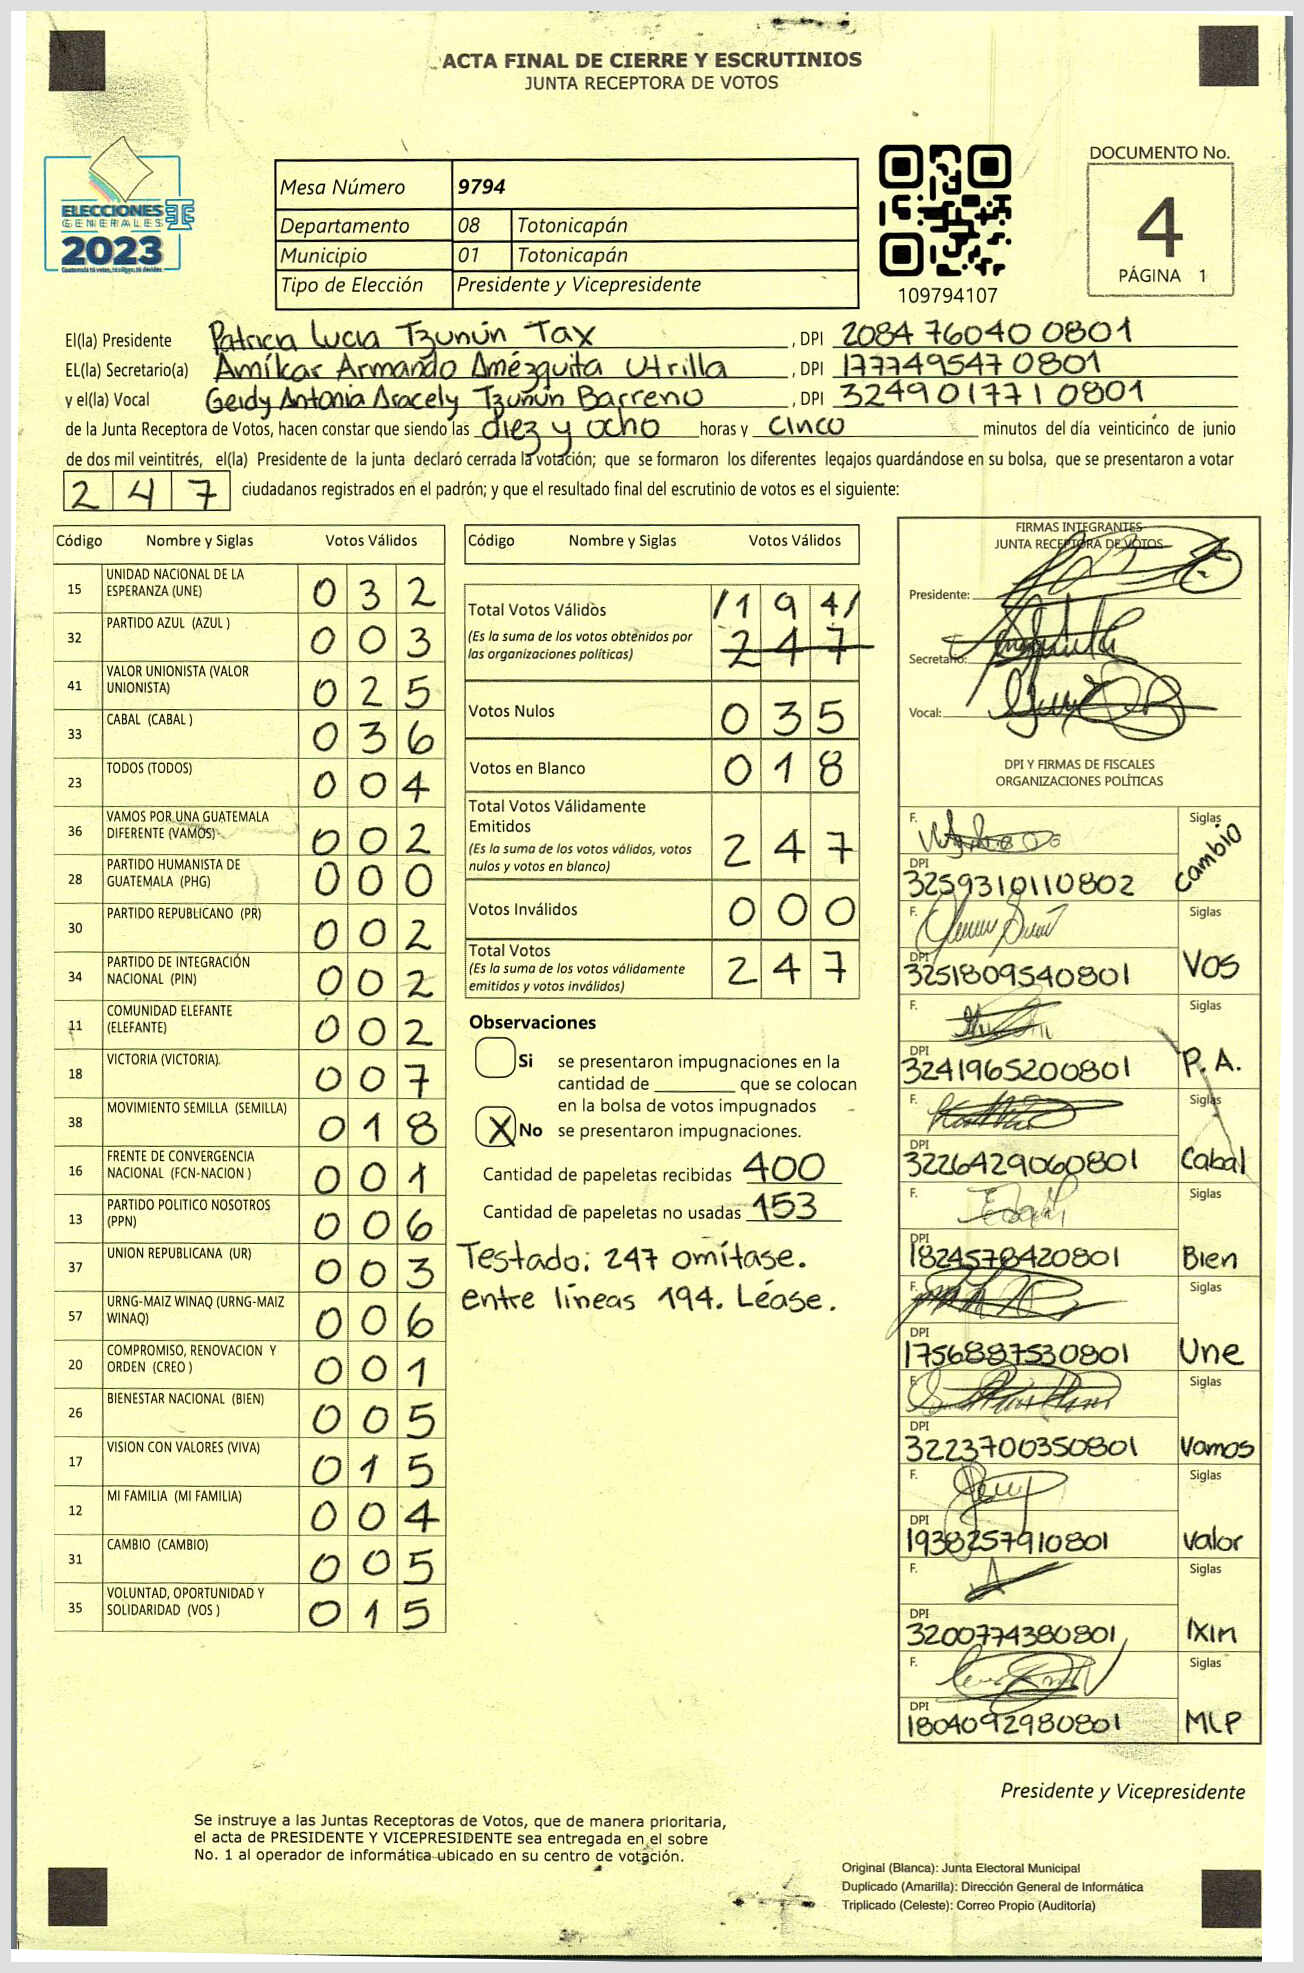 ACTA FINAL DE CIERRE Y ESCRUTINIOS
JUNTA RECEPTORA DE VOTOS
ELECCIONES
GENERALES
2023
Mesa Número 9794
Departamento 08 Totonicapán
Municipio 01 Totonicapán
Tipo de Elección Presidente y Vicepresidente
109794107
DOCUMENTO No.
4
PÁGINA 1
El(la) Presidente Patricia Lucia Tzunún Tax, DPI 2084 76040 0801
EL(la) Secretario(a) Amíkar Armando Amézquita Utrilla, DPI 177749547 0801
y el(la) Vocal Geidy Antonia Aracely Tzunún Barreno, DPI 3249 01771 0801
de la Junta Receptora de Votos, hacen constar que siendo las diez y ocho horas y cinco minutos del día veinticinco de junio
de dos mil veintitrés, el(la) Presidente de la junta declaró cerrada la votación; que se formaron los diferentes legajos guardándose en su bolsa, que se presentaron a votar
2 4 7 ciudadanos registrados en el padrón; y que el resultado final del escrutinio de votos es el siguiente:
Código Nombre y Siglas Votos Válidos
15 UNIDAD NACIONAL DE LA ESPERANZA (UNE) 0 3 2
32 PARTIDO AZUL (AZUL ) 0 0 3
41 VALOR UNIONISTA (VALOR UNIONISTA) 0 2 5
33 CABAL (CABAL ) 0 3 6
23 TODOS (TODOS) 0 0 4
36 VAMOS POR UNA GUATEMALA DIFERENTE (VAMOS) 0 0 2
28 PARTIDO HUMANISTA DE GUATEMALA (PHG) 0 0 0
30 PARTIDO REPUBLICANO (PR) 0 0 2
34 PARTIDO DE INTEGRACIÓN NACIONAL (PIN) 0 0 2
11 COMUNIDAD ELEFANTE (ELEFANTE) 0 0 2
18 VICTORIA (VICTORIA). 0 0 7
38 MOVIMIENTO SEMILLA (SEMILLA) 0 1 8
16 FRENTE DE CONVERGENCIA NACIONAL (FCN-NACION ) 0 0 1
13 PARTIDO POLITICO NOSOTROS (PPN) 0 0 6
37 UNION REPUBLICANA (UR) 0 0 3
57 URNG-MAIZ WINAQ (URNG-MAIZ WINAQ) 0 0 6
20 COMPROMISO, RENOVACION Y ORDEN (CREO ) 0 0 1
26 BIENESTAR NACIONAL (BIEN) 0 0 5
17 VISION CON VALORES (VIVA) 0 1 5
12 MI FAMILIA (MI FAMILIA) 0 0 4
31 CAMBIO (CAMBIO) 0 0 5
35 VOLUNTAD, OPORTUNIDAD Y SOLIDARIDAD (VOS ) 0 1 5
Código Nombre y Siglas Votos Válidos
Total Votos Válidos /1 9 4/
(Es la suma de los votos obtenidos por las organizaciones políticas) 2 4 7
Votos Nulos 0 3 5
Votos en Blanco 0 1 8
Total Votos Válidamente Emitidos
(Es la suma de los votos válidos, votos nulos y votos en blanco) 2 4 7
Votos Inválidos 0 0 0
Total Votos
(Es la suma de los votos válidamente emitidos y votos inválidos) 2 4 7
Observaciones
Si se presentaron impugnaciones en la
cantidad de ________ que se colocan
en la bolsa de votos impugnados
X No se presentaron impugnaciones.
Cantidad de papeletas recibidas 400
Cantidad de papeletas no usadas 153
Testado: 247 omítase.
entre líneas 194. Léase.
FIRMAS INTEGRANTES
JUNTA RECEPTORA DE VOTOS
Presidente:
Secretario:
Vocal:
DPI Y FIRMAS DE FISCALES
ORGANIZACIONES POLÍTICAS
F. Siglas
DPI 3259310110802 Cambio
F. Siglas
DPI 3251809540801 VOS
F. Siglas
DPI 3241965200801 P.A.
F. Siglas
DPI 3226429060801 Cabal
F. Siglas
DPI 1824578420801 Bien
F. Siglas
DPI 1756887530801 Une
F. Siglas
DPI 3223700350801 Vamos
F. Siglas
DPI 1938257910801 Valor
F. Siglas
DPI 3200774380801 IXIM
F. Siglas
DPI 1804092980801 MLP
Presidente y Vicepresidente
Se instruye a las Juntas Receptoras de Votos, que de manera prioritaria,
el acta de PRESIDENTE Y VICEPRESIDENTE sea entregada en el sobre
No. 1 al operador de informática ubicado en su centro de votación.
Original (Blanca): Junta Electoral Municipal
Duplicado (Amarilla): Dirección General de Informática
Triplicado (Celeste): Correo Propio (Auditoría)